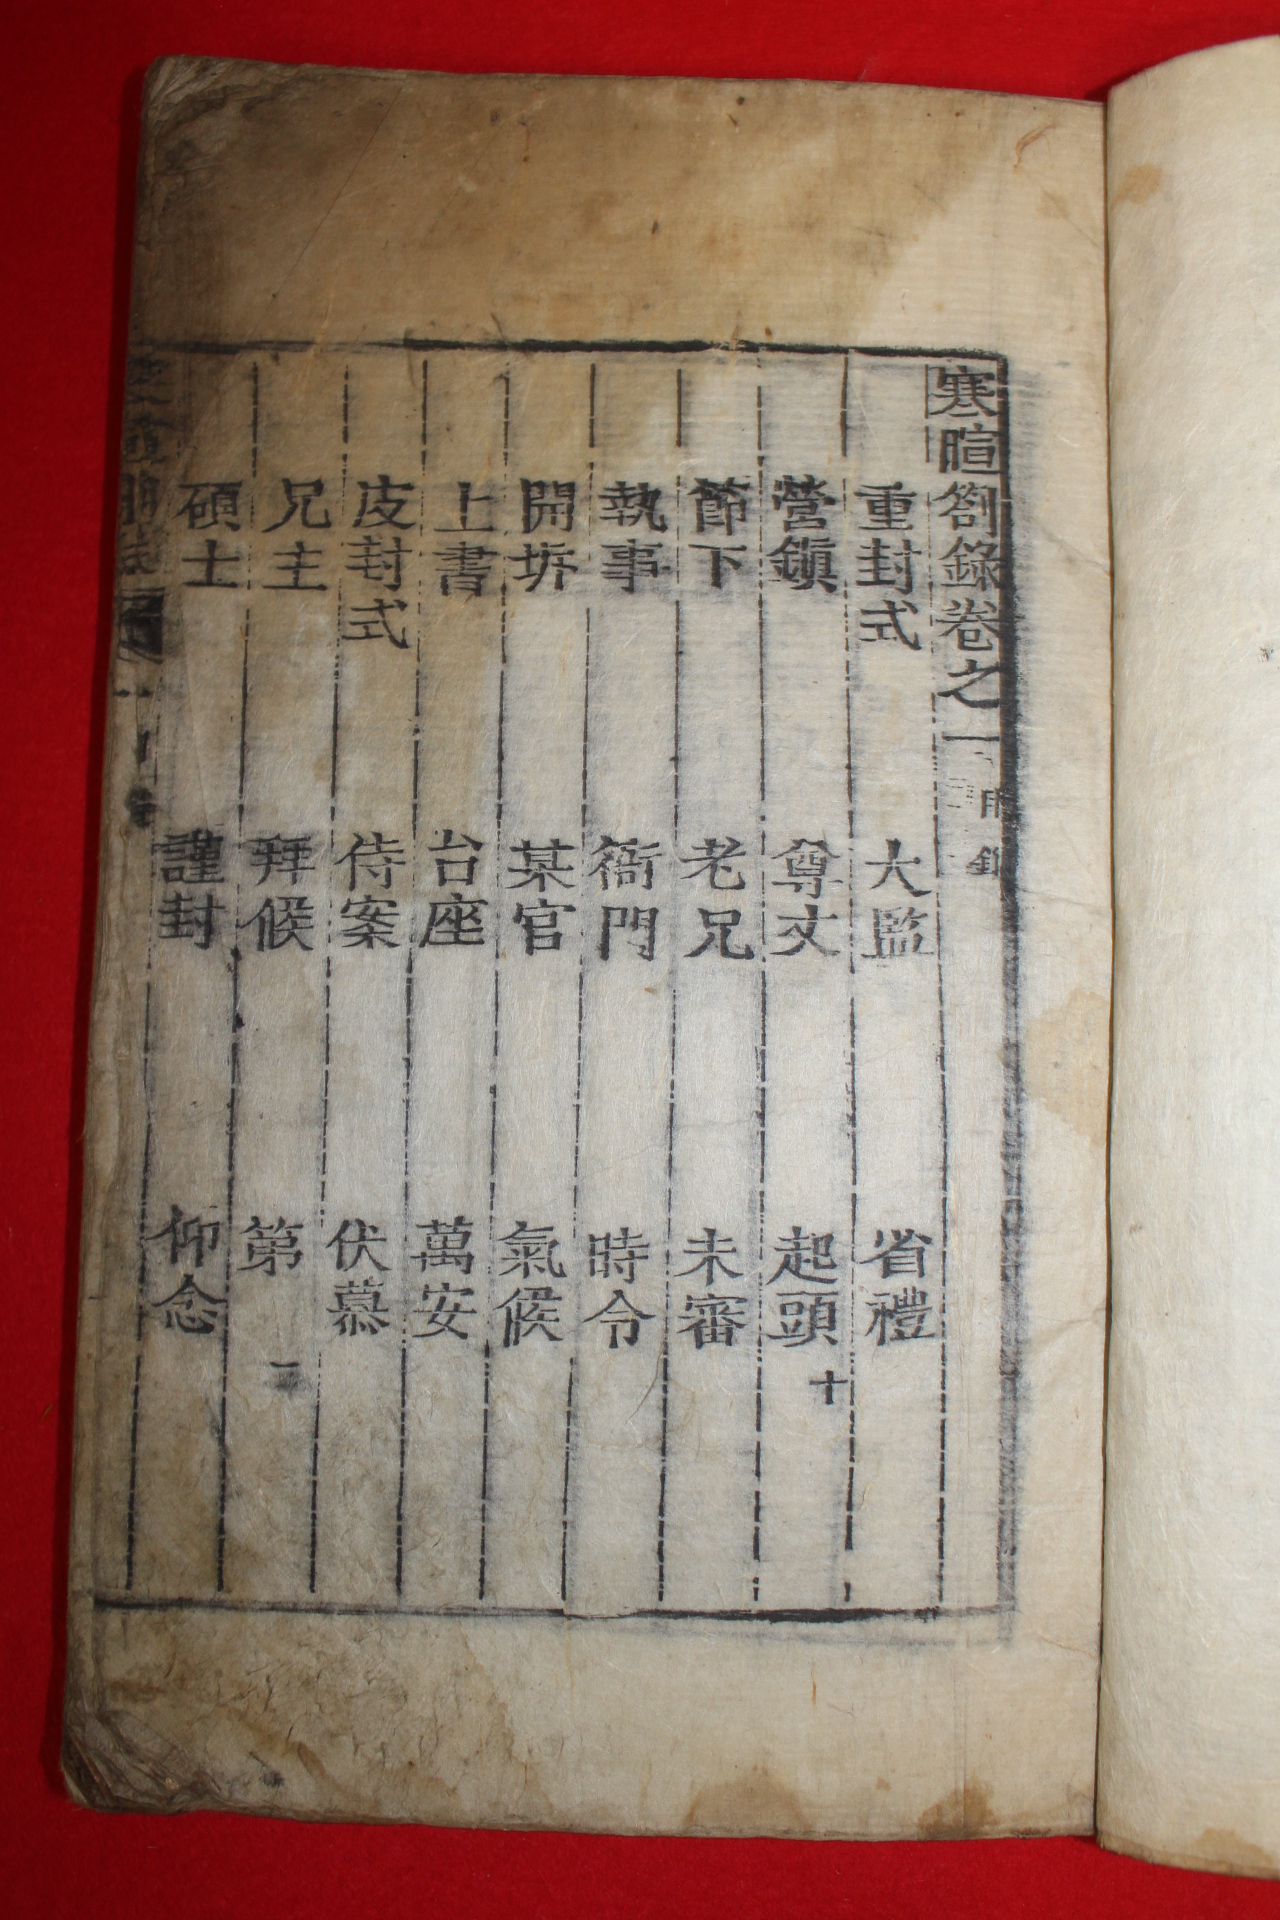 寒暄劄錄卷之一 目錄
重封式 大監 省禮
營鎭 尊丈 起頭十
節下 老兄 未審
執事 衙門 時令
開坼 某官 氣候
上書 台座 萬安
皮封式 侍案 伏慕
兄主 拜候 第一
碩士 謹封 仰念